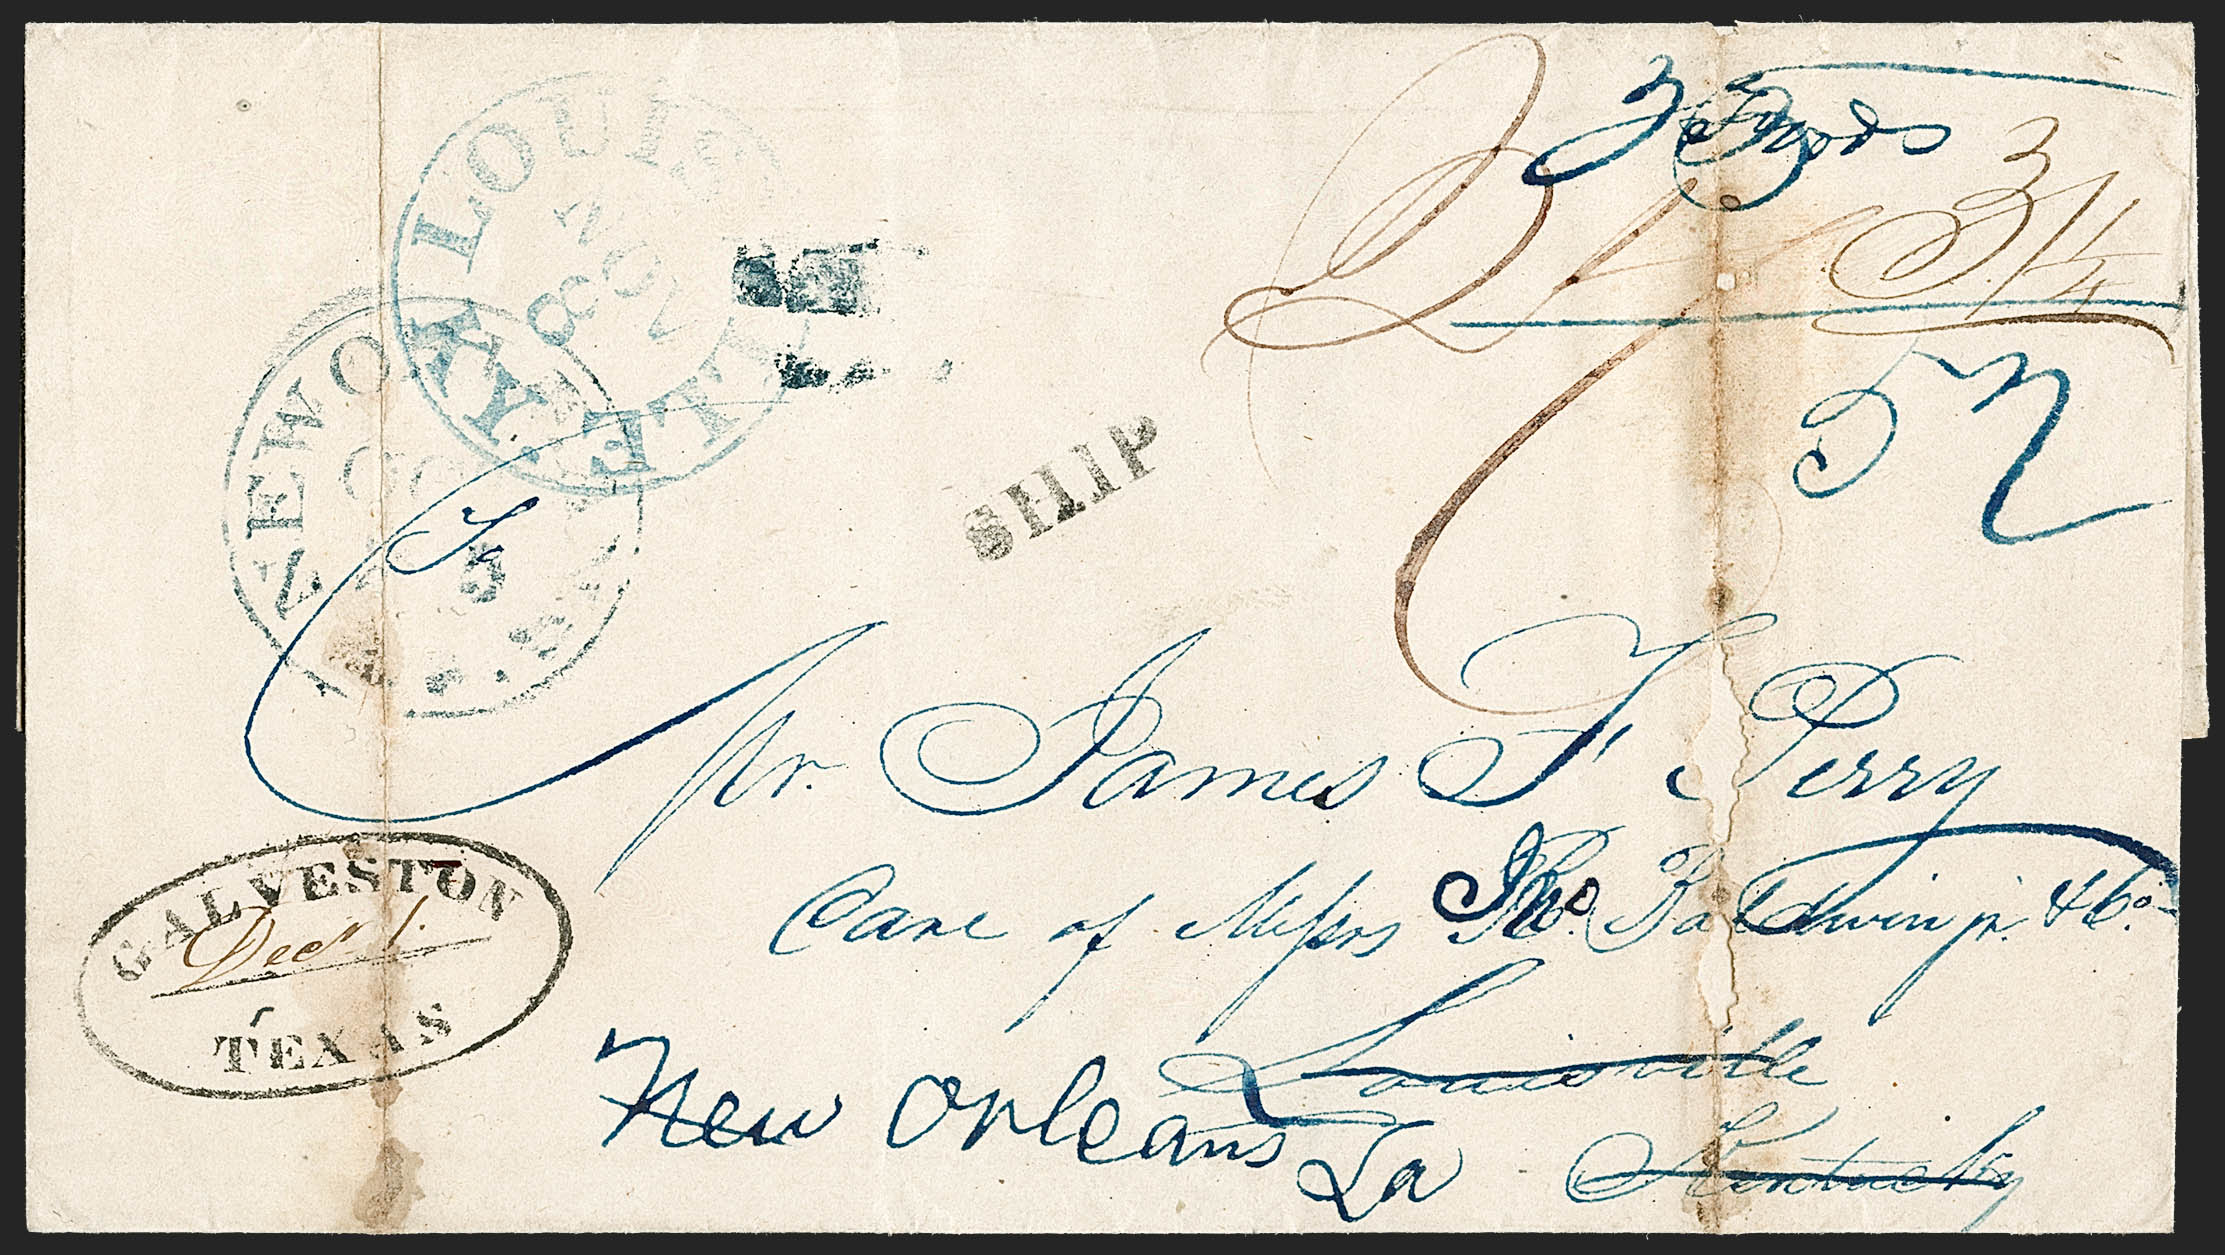 LOUISVILLE KY
NOV
8
NEW ORLEANS LA.
OCT
5
SHIP
3
31/4
52
To
Mr. James F Perry
Care of Messrs Jno. Baldwin jr. & Co.
Louisville
Kentucky
New Orleans
La
GALVESTON
Decr 1.
TEXAS